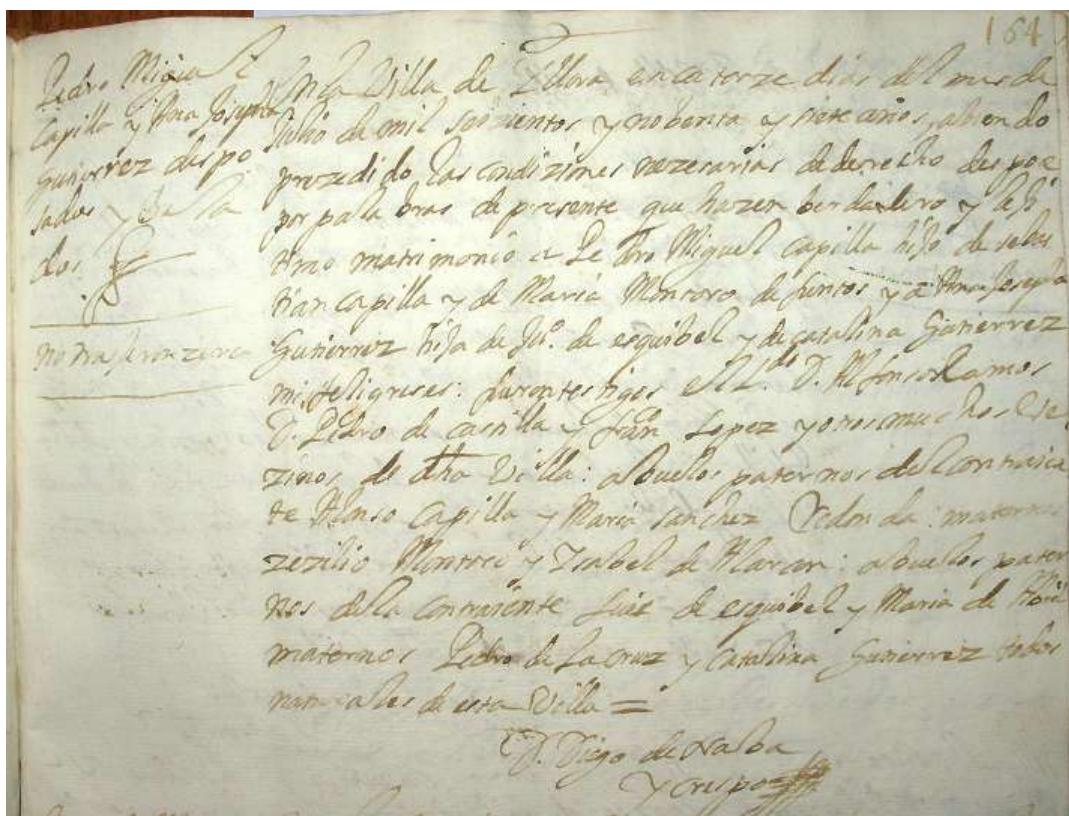 164
Pedro Miguel
Capilla y Ana Josepha
Gutierrez despo
sados y Bela
dos
En la Villa de Yllora en catorze dias del mes de
Julio de mil seizientos y nobenta y siete años, abiendo
prezedido las condiziones nezesarias de derecho despose
por palabras de presente que hazen berdadero y leji
timo matrimonio a Pedro Miguel Capilla hijo de sebas
tian Capilla y de Maria Montoro difuntos y a Ana Josepha
Gutierrez hija de Juº. de esquibel y de catalina Gutierrez
mis feligreses: fueron testigos el L.do D. Alfonso Ramos
D. Pedro de castilla y franco Lopez y otros muchos Ve
zinos de dha Villa: abuelos paternos del Contraien
te Alonso Capilla y Maria sanchez Redonda: maternos
zezilio Montoro y Ysabel de Alarcon: abuelos pater
nos dela contraiente Luis de esquibel y Maria de
maternos Pedro de La cruz y catalina Gutierrez todos
naturales de esta Villa =
D. Diego de
y crespo